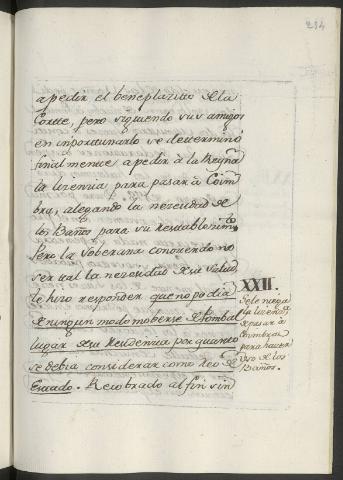 234
a pedir el beneplazito de la
Corte, pero siguiendo sus amigos
en inportunarlo se determinó
finalmente a pedir à la Reyna
la lizenzia para pasar à Coim-
bra, alegando la nezesidad de
los Baños para su Restablezim.to
Pero la Soberana conoziendo no
ser tal la nezesidad de su salud,
le hizo responder que no podia
de ningun modo moberse de Pombal
lugar de su Residenzia por quanto
se debia considerar como Reo de
Estado. Recobrado al fin sin
XXII.
Se le niega
la lizenzia
de pasar à
Coimbra
para hazer
uso de los
Baños.